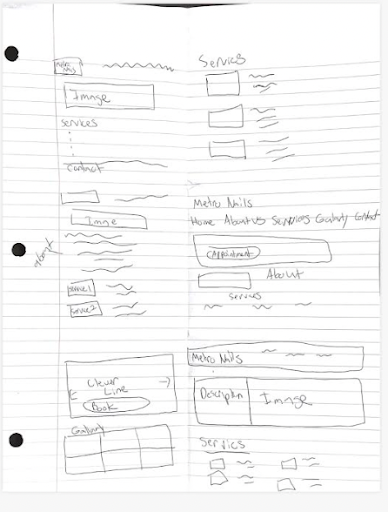 Metro
Nails
Image
Services
Contact
Image
About
Service 1
Service 2
Clever
Line
Book
Gallery
Services
Metro Nails
Home About us Services Gallary Contact
Appointment
About
Services
Metro Nails
Image
Servics